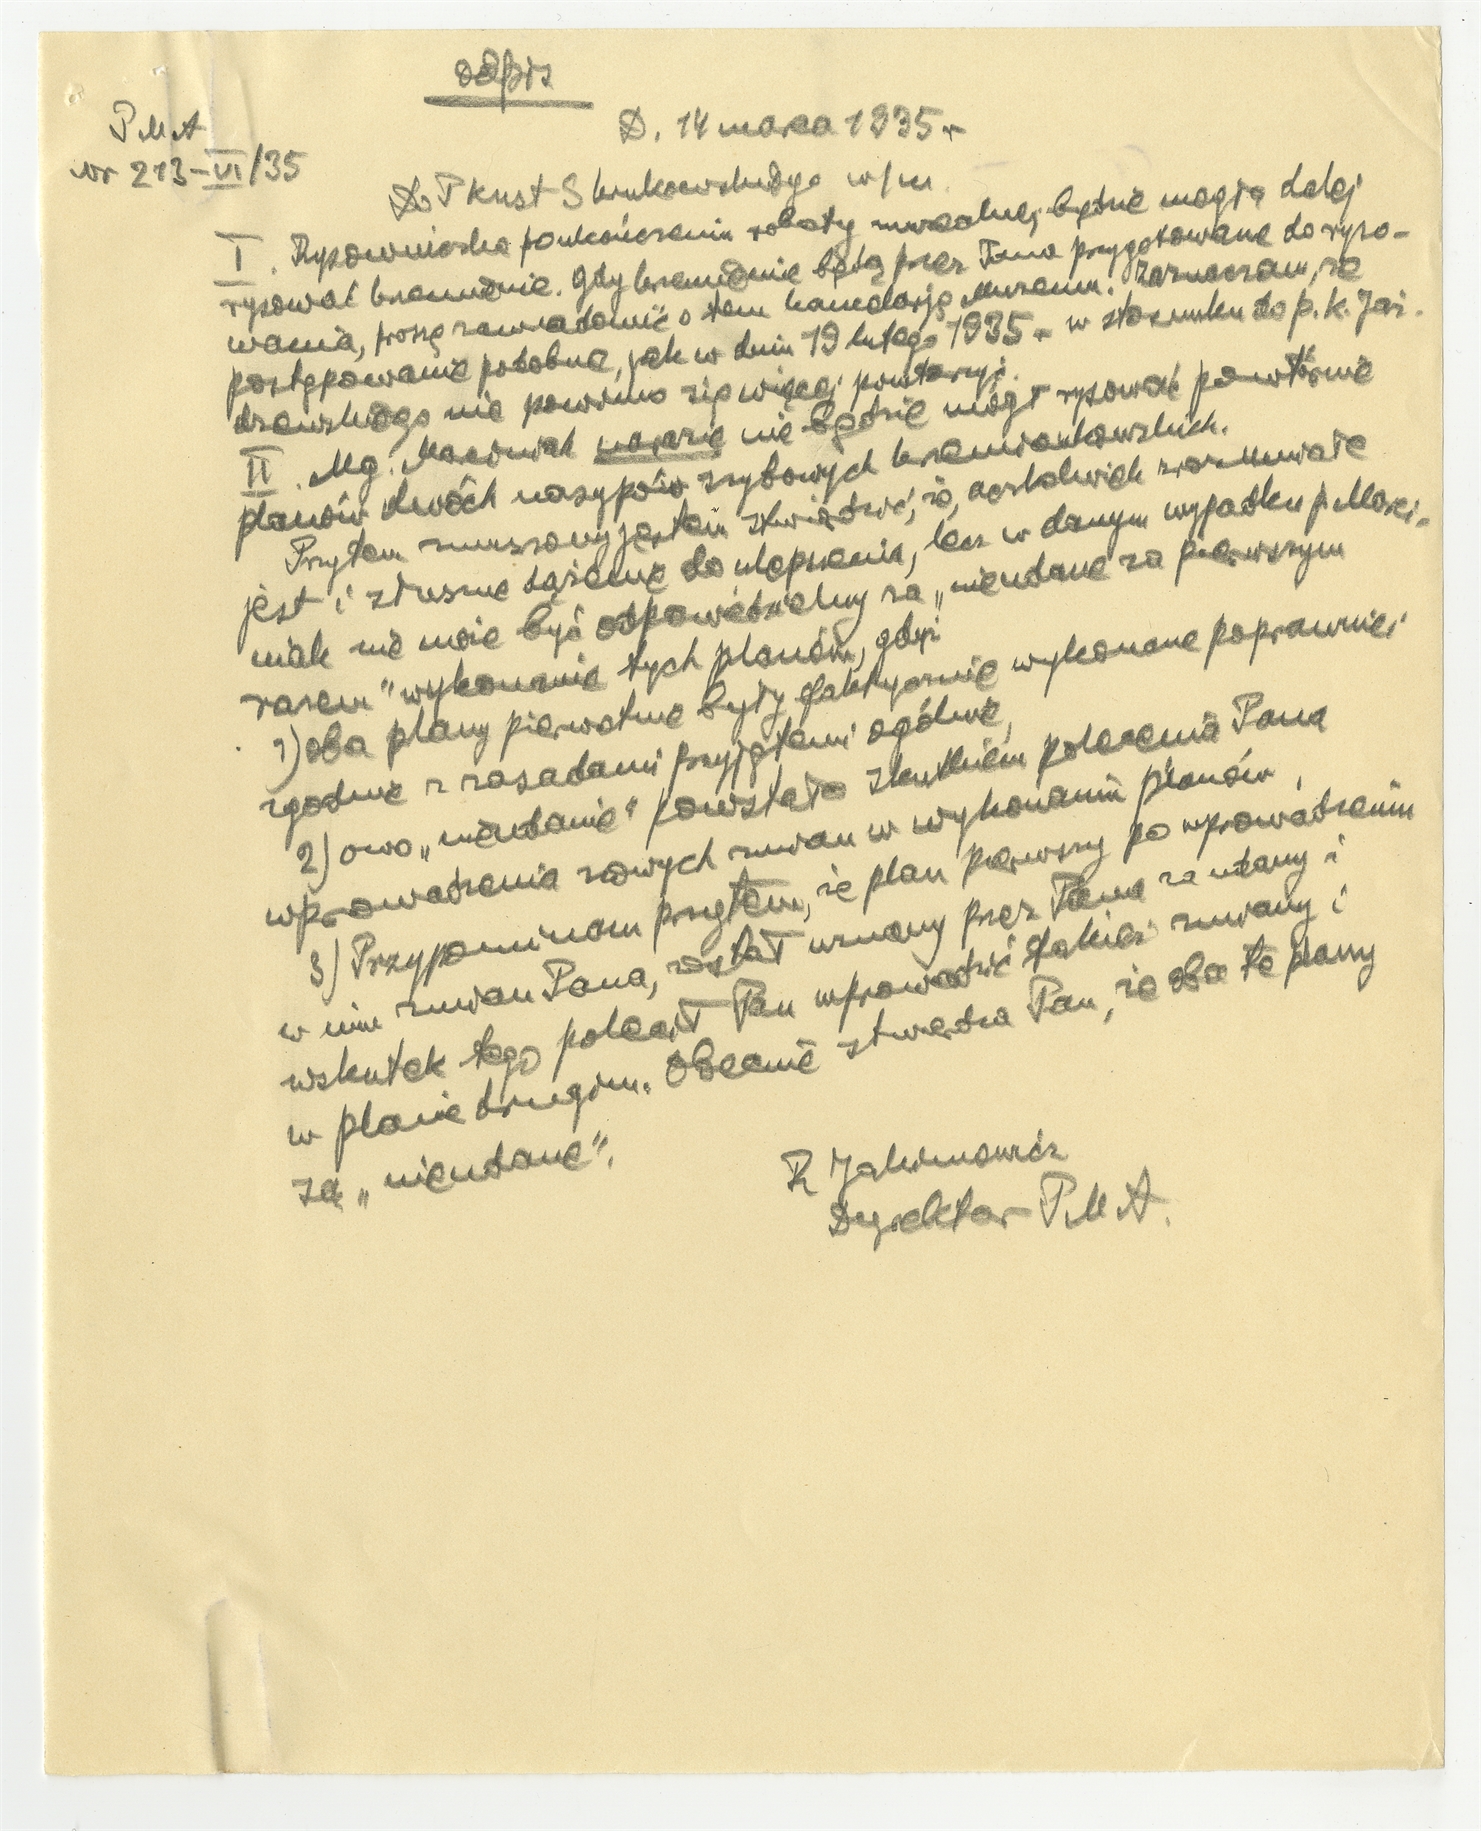 odpis
D. 14 marca 1935 r
P M A
nr 213-VI/35
Do P Kust S Krukowskiego w/m.
I. Rysowniczka po ukończeniu roboty muzealnej będzie mogła dalej
rysować krzemienie. Gdy krzemienie będą przez Pana przygotowane do ryso-
wania, proszę zawiadomić o tem kancelarję Muzeum. Zaznaczam, że
postępowanie podobne, jak w dniu 19 lutego 1935 r w stosunku do p. K. Jaż.
drzewskiego nie powinno się więcej powtarzyć.
II. Mg. Marciniak narazie nie będzie mógł rysować powtórnie
planów dwóch nasypów szybowych krzemionkowskich.
Przytem zmuszony jestem stwierdzić, że, aczkolwiek zrozumiałe
jest i słuszne dążenie do ulepszenia, lecz w danym wypadku p Marci-
niak nie może być odpowiedzialny za „nieudane za pierwszym
razem" wykonanie tych planów, gdyż
1) oba plany pierwotne były faktycznie wykonane poprawnie i
zgodnie z zasadami przyjętemi ogólnie,
2) owo „nieudanie" powstało skutkiem polecenia Pana
wprowadzenia nowych zmian w wykonaniu planów,
3) Przypominam przytem, że plan pierwszy po wprowadzeniu
w nim zmian Pana, został uznany przez Pana za udany i
wskutek tego polecił Pan wprowadzić takież zmiany i
w planie drugim. Obecnie stwierdza Pan, że oba te plany
są „nieudane".
R Jakimowicz
Dyrektor P M A.